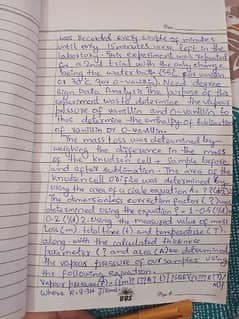 was recorded every couple of minutes
until only 15 minutes were left in the
laboratory. This experiment was repeated
for a 2nd trial with the only change
being the water bath (50°C for vanillin
or 30°C for O-vanillin). Need degree
sign Data Analysis The purpose of this
experiment was to determine the vapour
pressure of vanillin and O-vanillin to
thus determine the enthalpy of sublimation
of vanillin or O-vanillin.
The mass lost was determined by
weighing the difference in the mass
of the Knudsen cell + sample before
and after sublimation. The area of the
Knudsen cell orifice was determined by
using the area of a circle equation A=
The dimensionless correction factor (?) was
determined using the equation
Using the measured value of mass
loss (m), total time (t) and temperature (T),
along with the calculated thickness
parameter (? and area (A) we determined
the vapour pressure of our samples using
the following equation:
Vapour pressure
where
Page